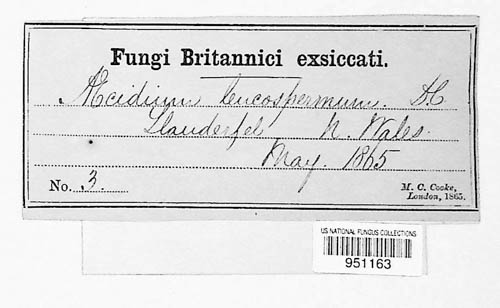 Fungi Britannici exsiccati.
Æcidium leucospermum. D.C.
Llanderfel N. Wales.
May. 1865
No. 3.
M. C. Cooke,
London, 1865.
US NATIONAL FUNGUS COLLECTIONS
951163